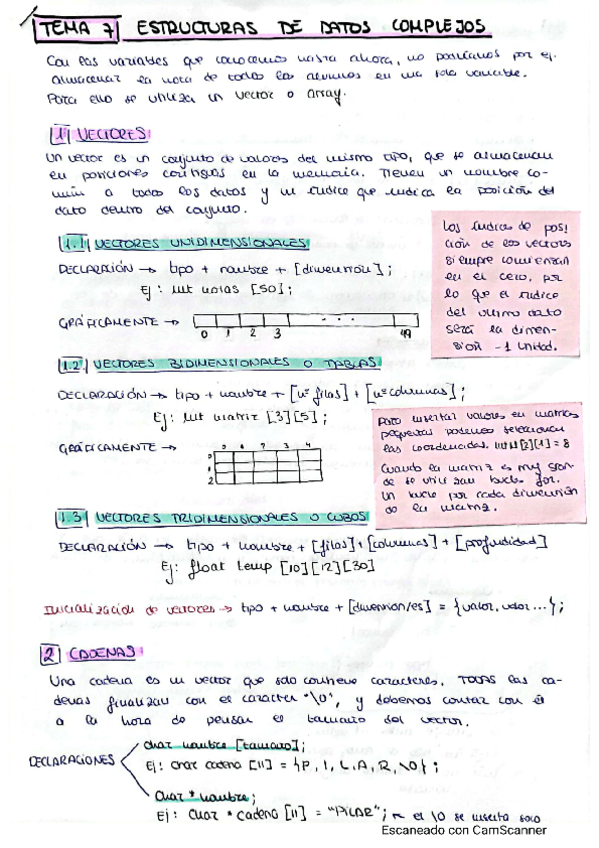 TEMA 7 ESTRUCTURAS DE DATOS COMPLEJOS
Con las variables que conocemos hasta ahora, no podríamos por ej.
almacenar la nota de todos los alumnos en una sola variable.
Para ello se utiliza un vector o array.
1 VECTORES
Un vector es un conjunto de valores del mismo tipo, que se almacenan
en posiciones contiguas en la memoria. Tienen un nombre co-
mún a todos los datos y un índice que indica la posición del
dato dentro del conjunto.
1.1 VECTORES UNIDIMENSIONALES
DECLARACIÓN → tipo + nombre + [dimensión];
Ej: int notas [50];
GRÁFICAMENTE →
0 1 2 3 ... 49
Los índices de posi
ción de los vectores
siempre comienzan
en el cero, por
lo que el índice
del último dato
será la dimen-
sión -1 unidad.
1.2 VECTORES BIDIMENSIONALES O TABLAS
DECLARACIÓN → tipo + nombre + [nº filas] + [nº columnas];
Ej: int matriz [3][5];
GRÁFICAMENTE →
Para insertar valores en matrices
pequeñas podemos seleccionar
las coordenadas. [2][1] = 8
Cuando la matriz es muy gran-
de se utilizan bucles for.
Un bucle por cada dimensión
de la matriz.
1.3 VECTORES TRIDIMENSIONALES O CUBOS
DECLARACIÓN → tipo + nombre + [filas]+[columnas] + [profundidad]
Ej: float temp [10][12][30]
Inicialización de vectores → tipo + nombre + [dimension/es] = {valor, valor...};
2 CADENAS
Una cadena es un vector que solo contiene caracteres. TODAS las ca-
denas finalizan con el caracter "\0", y debemos contar con él
a la hora de pensar el tamaño del vector.
DECLARACIONES
char nombre [tamaño];
Ej: char cadena [11] = {P, I, L, A, R, \0};
char * nombre;
Ej: char * cadena [11] = "PILAR"; ← el \0 se inserta solo
Escaneado con CamScanner